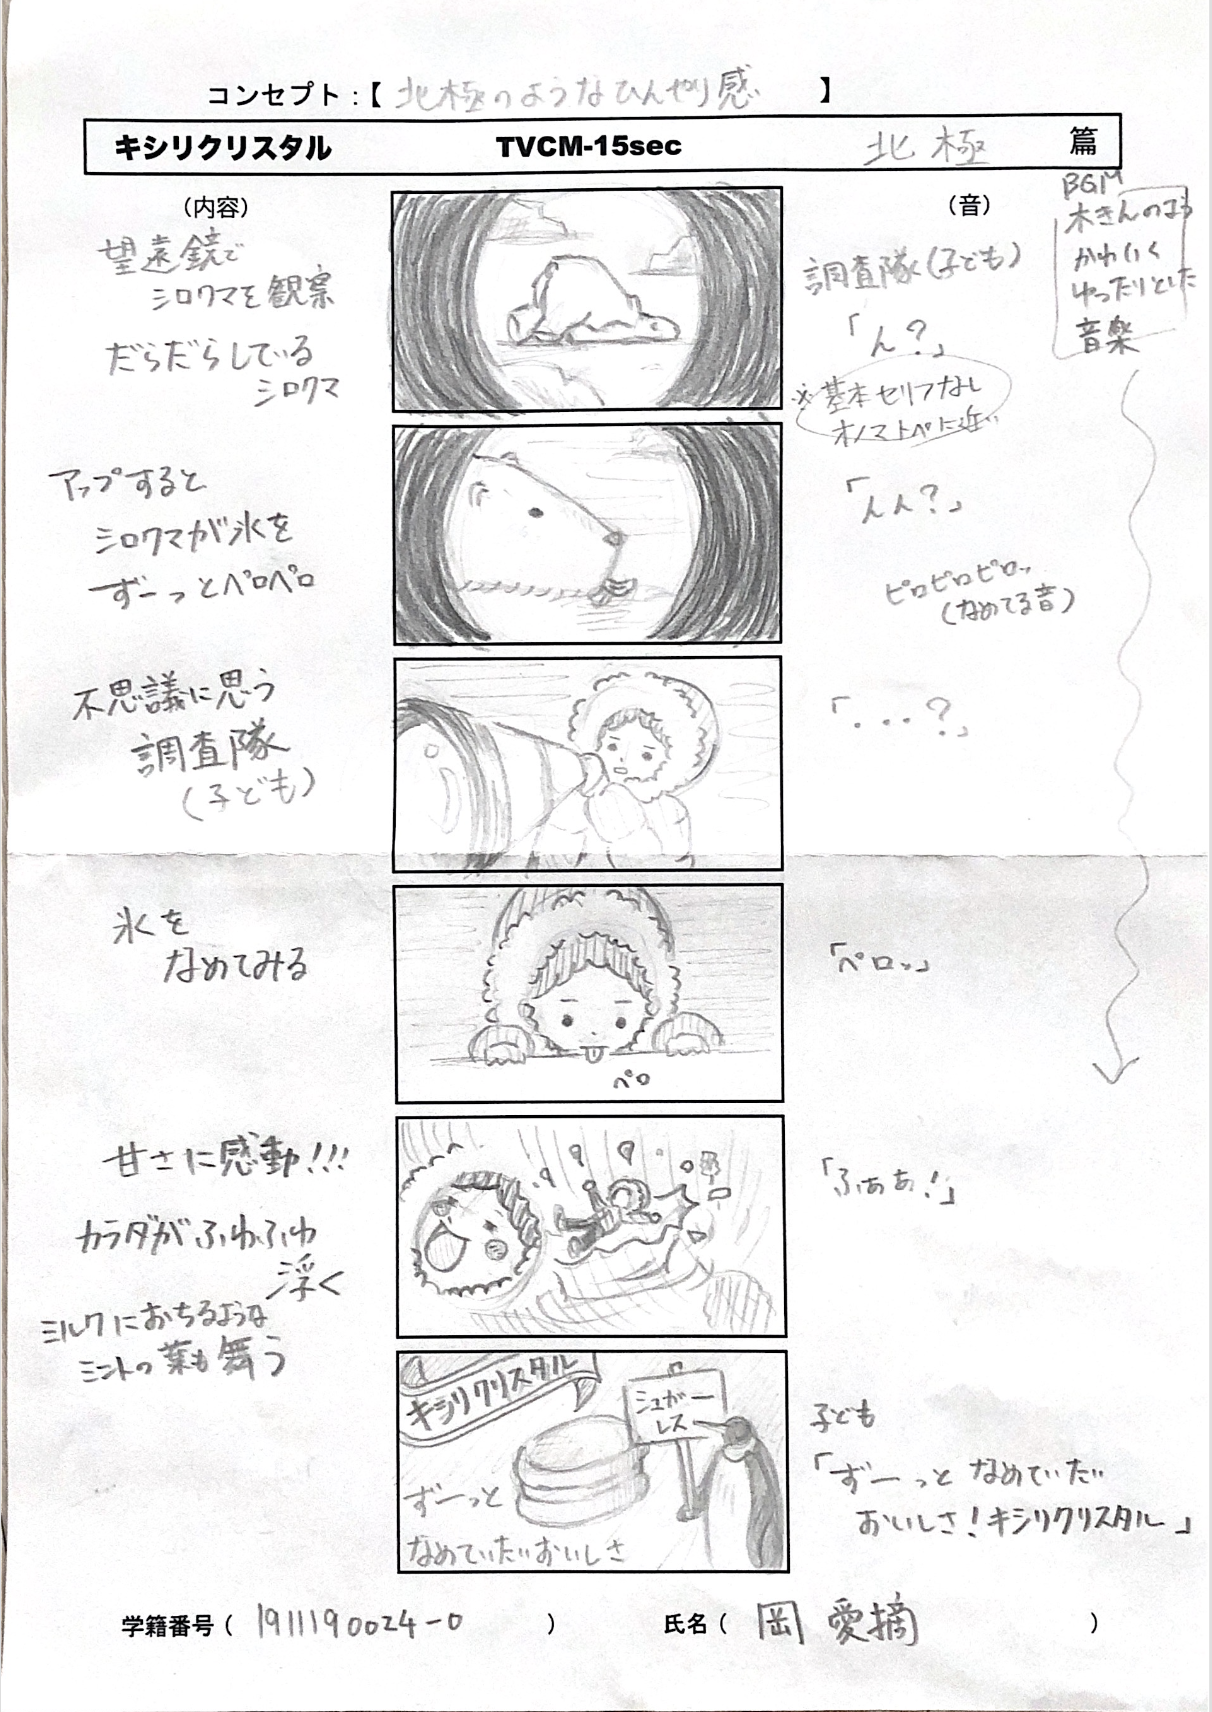 コンセプト:【 北極のようなひんやり感 】
キシリクリスタル TVCM-15sec 北極 篇
(内容)
(音)
BGM
木きんのよう
かわいく
ゆったりとした
音楽
望遠鏡で
シロクマを観察
だらだらしている
シロクマ
調査隊(子ども)
「ん?」
※基本セリフなし
オノマトペに近い
アップすると
シロクマが氷を
ずーっとペロペロ
「んん?」
ピロピロピロッ
(なめてる音)
不思議に思う
調査隊
(子ども)
「...?」
氷を
なめてみる
ペロ
「ペロッ」
甘さに感動!!!
カラダがふわふわ
浮く
ミルクにおちるような
ミントの葉も舞う
「ふぁぁ!」
キシリクリスタル
シュガー
レス
ずーっと
なめていたいおいしさ
子ども
「ずーっと なめていたい
おいしさ!キシリクリスタル」
学籍番号( 1911190024-0 ) 氏名( 岡 愛摘 )